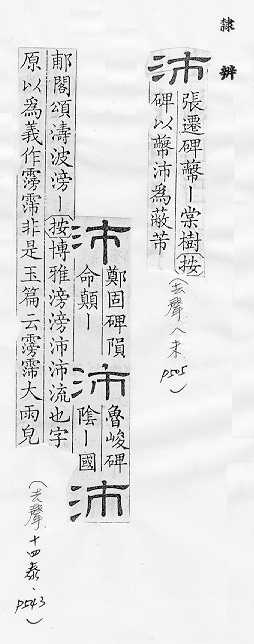 隸辨
沛
張遷碑幣丨棠樹按
碑以幣沛為蔽芾
(去聲八未 P505)
沛
鄭固碑隕
命顛丨
沛
魯峻碑
陰丨國
沛
郙閣頌濤波滂丨按博雅滂滂沛沛流也字
原以為義作霶霈非是玉篇云霶霈大雨皃
(去聲十四泰.P543)